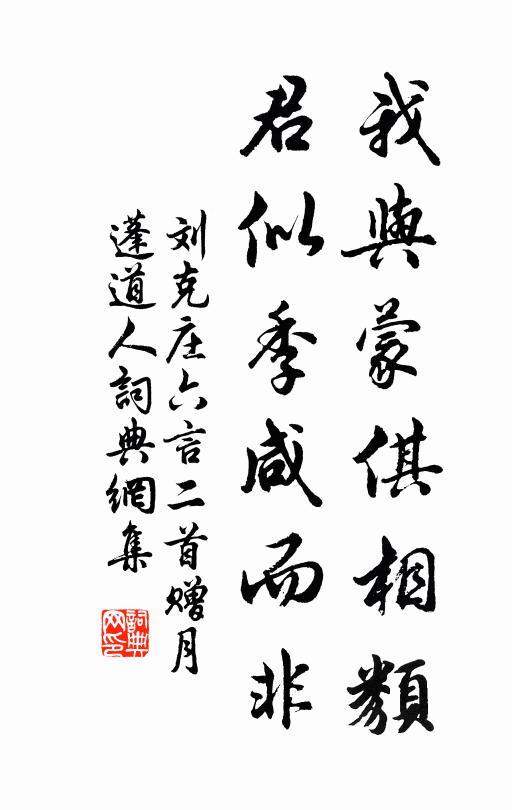 我與蒙倛相類
君似季咸而非
刘克庄六言二首赠月
蓬道人詞典網集
詞典网印